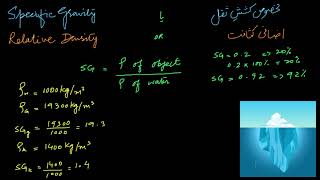 Specific Gravity
Relative Density
OR
مخصوص کشش ثقل
اضافی کثافت
SG = ρ of object / ρ of water
ρw = 1000 kg/m³
ρg = 19300 kg/m³
SGg = 19300/1000 = 19.3
ρk = 1400 kg/m³
SGk = 1400/1000 = 1.4
SG = 0.2 => 20%
0.2 × 100% = 20%
SG = 0.92 => 92%